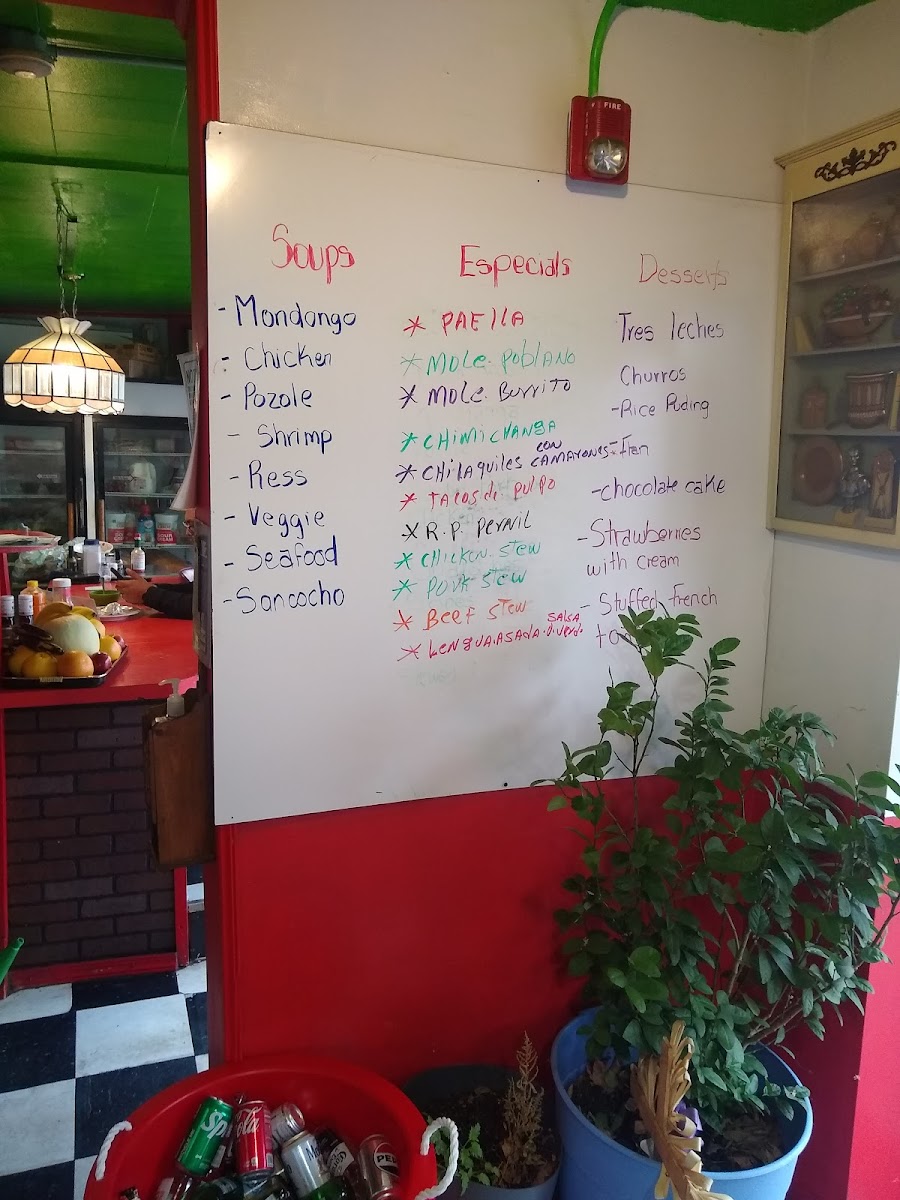 FIRE
Soups
- Mondongo
- Chicken
- Pozole
- Shrimp
- Ress
- Veggie
- Seafood
- Soncocho
Especials
* PAElla
* MOLE. POBLANO
* MOLE. BURRITO
* CHIMICHANGA
* CHILAQUILES CON CAMARONES
* TACOS de PULPO
* R.P. PERNIL
* CHICKEN. STEW
* PORK STEW
* BEEF STEW
* LENGUA.ASADA.O.SALSA VERDE
Desserts
Tres leches
Churros
- Rice Puding
- Flan
- chocolate cake
- Strawberries
with cream
- Stuffed French